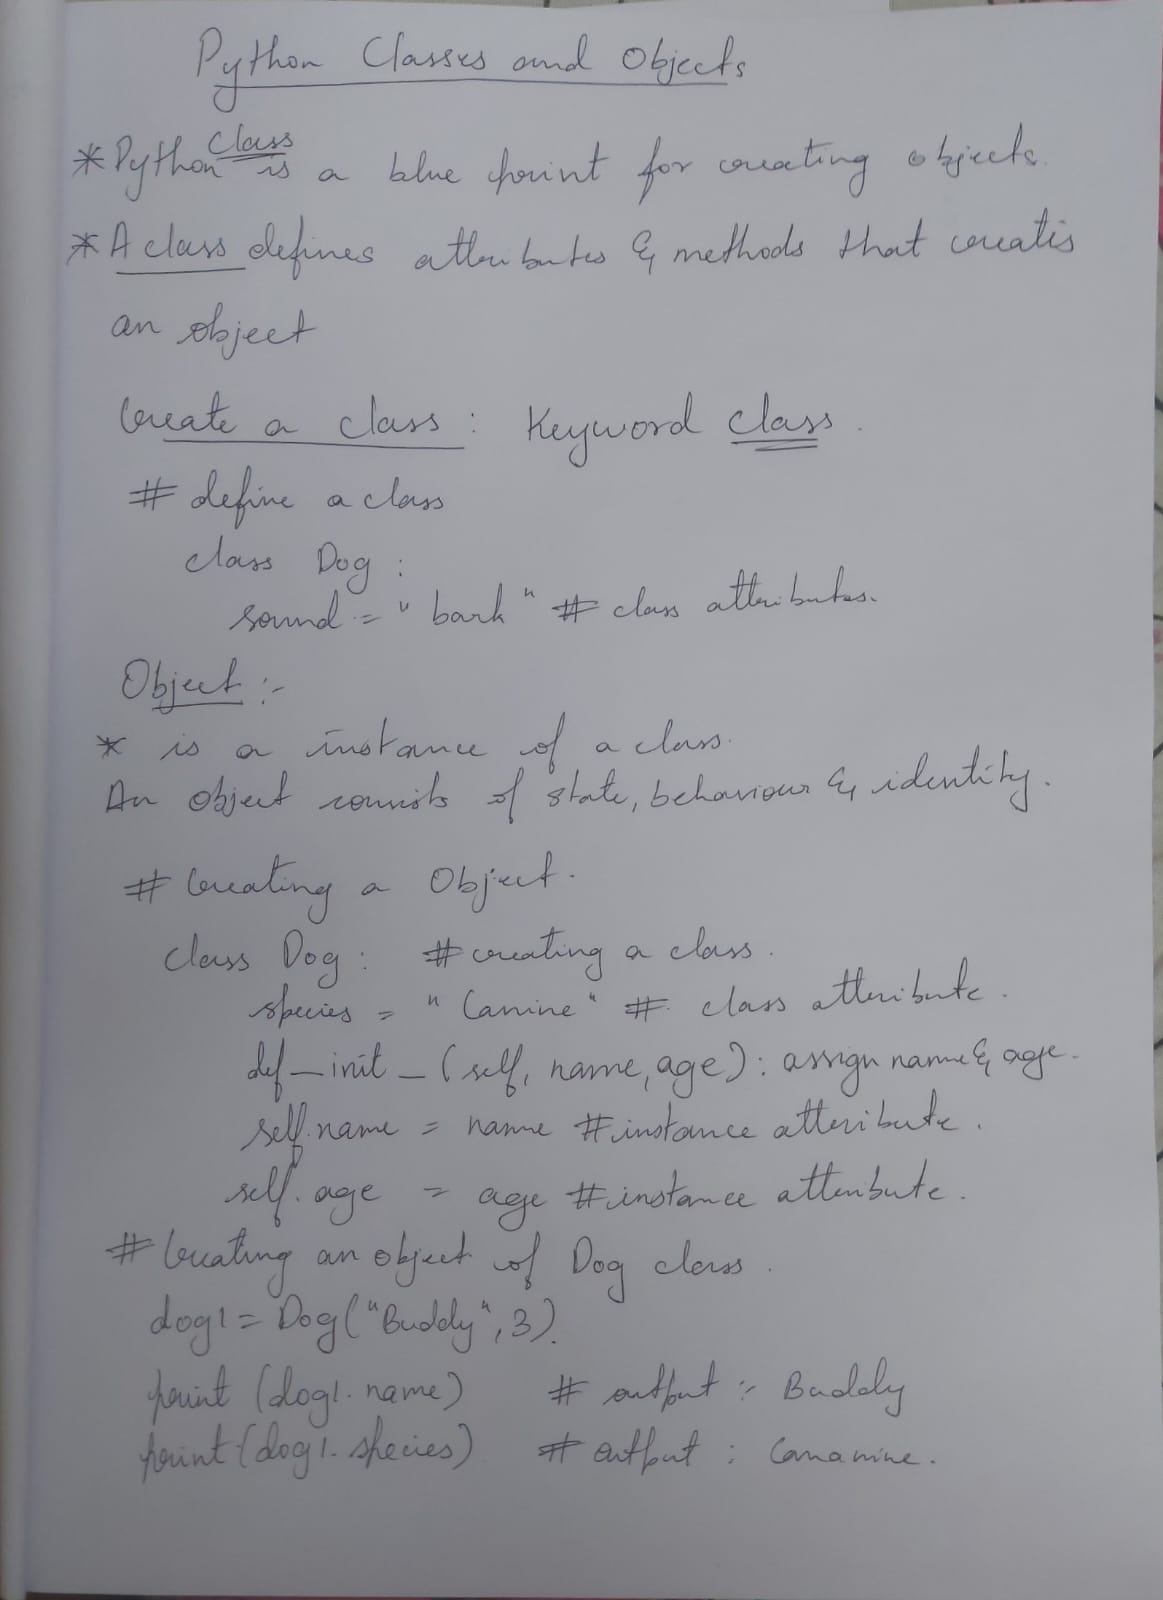 Python Classes and Objects
* Python class is a blue print for creating objects.
* A class defines attributes & methods that creates
an object
Create a class : Keyword class.
# define a class
class Dog :
sound = "bark" # class attributes.
Object :-
* is a instance of a class.
An object consists of state, behaviour & identity.
# Creating a Object.
class Dog : # creating a class.
species = "Canine" # class attribute.
def _init_ (self, name, age) : assign name & age.
self.name = name # instance attribute.
self.age = age # instance attribute.
# Creating an object of Dog class.
dog1 = Dog("Buddy", 3).
print (dog1.name) # output :- Buddy
print (dog1.species) # output : Cananine.